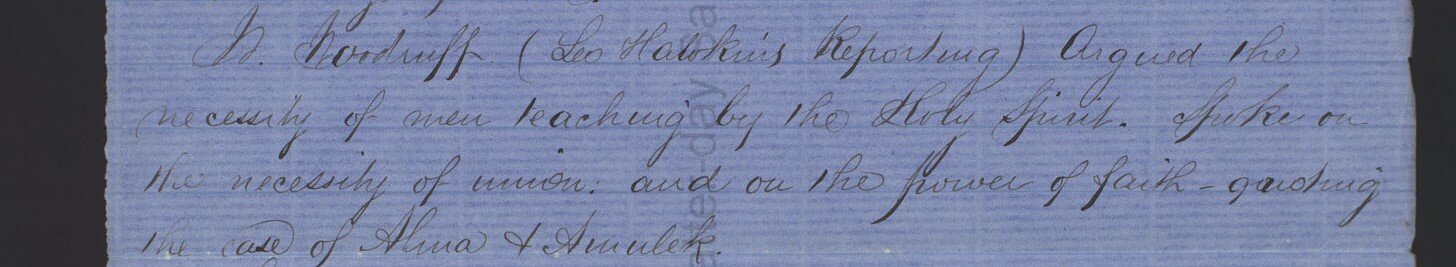 W. Woodruff (Leo Hawkins Reporting) Argued the
necessity of men teaching by the Holy Spirit. Spoke on
the necessity of union: and on the power of faith - quoting
the case of Alma & Amulek.